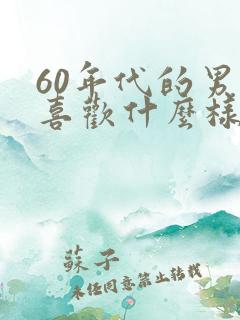 60年代的男
喜歡什麼樣
蘇子
未經同意禁止轉載